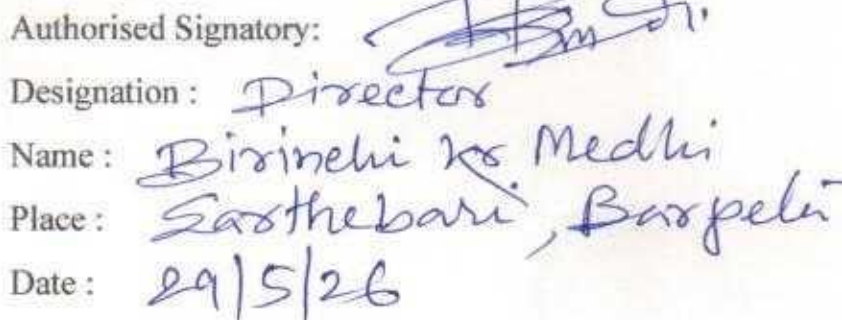 Authorised Signatory:
Designation : Director
Name : Birinchi kr Medhi
Place : Sarthebari, Barpeta
Date : 29/5/26